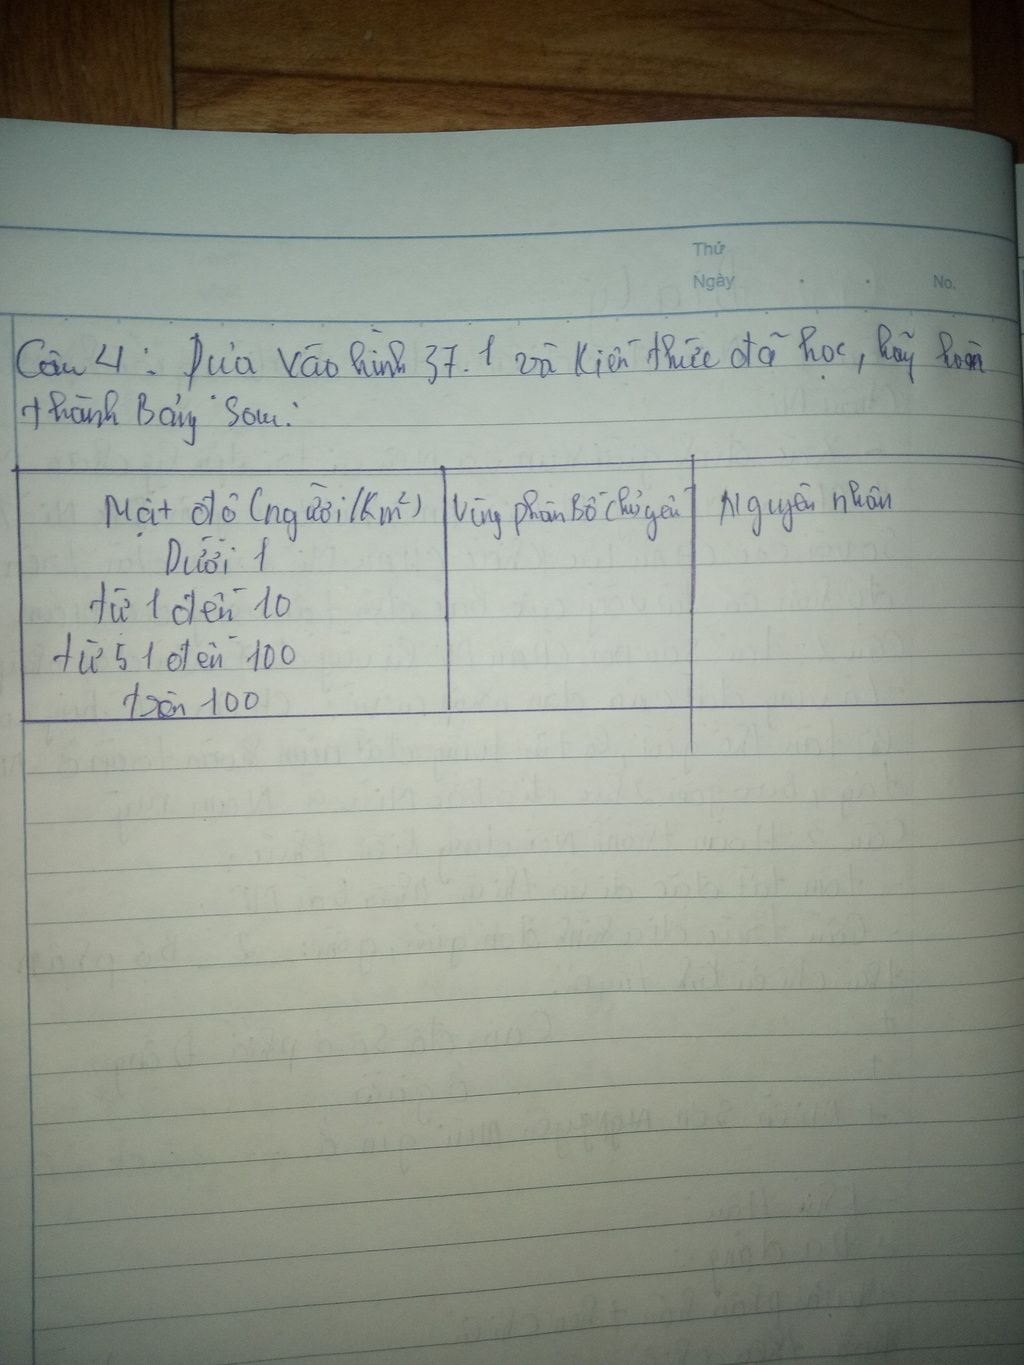 Thứ
Ngày . . No.
Câu 4: Dựa vào hình 37.1 và kiến thức đã học, hãy hoàn
thành Bảng sau:
Mật độ (người/Km²) Vùng phân Bố chủ yếu Nguyên nhân
Dưới 1
từ 1 đến 10
từ 51 đến 100
trên 100